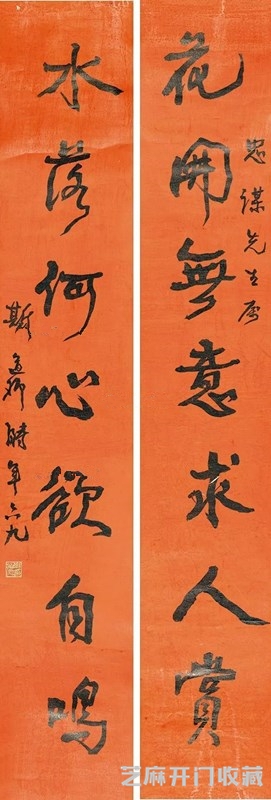 花開無意求人賞
忠謀先生屬
水落何心欲自鳴
斯道卿時年六九
芝麻开门收藏